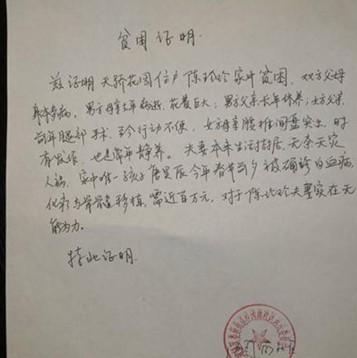 贫困证明.
兹证明天骄花园住户陈玲玲家中贫困,双方父母
身体多病。男方母去年病逝,花费巨大;男方父亲长年休养;女方父亲
前年腿部手术,至今行动不便,女方母亲腰椎间盘突出,时
有发作,也是常年静养。夫妻本来生活拮据,无余天灾
人祸,家中唯一孩子唐昊辰今年春节回乡被确诊白血病,
化疗与骨髓移植需近百万元,对于陈玲玲夫妻实在无
能为力.
特此证明.